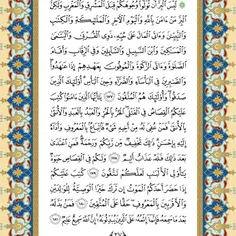 لَّيْسَ ٱلْبِرَّ أَن تُوَلُّوا۟ وُجُوهَكُمْ قِبَلَ ٱلْمَشْرِقِ وَٱلْمَغْرِبِ وَلَٰكِنَّ
ٱلْبِرَّ مَنْ ءَامَنَ بِٱللَّهِ وَٱلْيَوْمِ ٱلْءَاخِرِ وَٱلْمَلَٰٓئِكَةِ وَٱلْكِتَٰبِ
وَٱلنَّبِيِّـۧنَ وَءَاتَى ٱلْمَالَ عَلَىٰ حُبِّهِۦ ذَوِى ٱلْقُرْبَىٰ وَٱلْيَتَٰمَىٰ
وَٱلْمَسَٰكِينَ وَٱبْنَ ٱلسَّبِيلِ وَٱلسَّآئِلِينَ وَفِى ٱلرِّقَابِ وَأَقَامَ
ٱلصَّلَوٰةَ وَءَاتَى ٱلزَّكَوٰةَ وَٱلْمُوفُونَ بِعَهْدِهِمْ إِذَا عَٰهَدُوا۟
وَٱلصَّٰبِرِينَ فِى ٱلْبَأْسَآءِ وَٱلضَّرَّآءِ وَحِينَ ٱلْبَأْسِ أُو۟لَٰٓئِكَ ٱلَّذِينَ
صَدَقُوا۟ وَأُو۟لَٰٓئِكَ هُمُ ٱلْمُتَّقُونَ ١٧٧ يَٰٓأَيُّهَا ٱلَّذِينَ ءَامَنُوا۟ كُتِبَ
عَلَيْكُمُ ٱلْقِصَاصُ فِى ٱلْقَتْلَى ٱلْحُرُّ بِٱلْحُرِّ وَٱلْعَبْدُ بِٱلْعَبْدِ وَٱلْأُنثَىٰ
بِٱلْأُنثَىٰ فَمَنْ عُفِىَ لَهُۥ مِنْ أَخِيهِ شَىْءٌ فَٱتِّبَاعٌۢ بِٱلْمَعْرُوفِ وَأَدَآءٌ
إِلَيْهِ بِإِحْسَٰنٍ ذَٰلِكَ تَخْفِيفٌ مِّن رَّبِّكُمْ وَرَحْمَةٌ فَمَنِ ٱعْتَدَىٰ
بَعْدَ ذَٰلِكَ فَلَهُۥ عَذَابٌ أَلِيمٌ ١٧٨ وَلَكُمْ فِى ٱلْقِصَاصِ حَيَوٰةٌ
يَٰٓأُو۟لِى ٱلْأَلْبَٰبِ لَعَلَّكُمْ تَتَّقُونَ ١٧٩ كُتِبَ عَلَيْكُمْ
إِذَا حَضَرَ أَحَدَكُمُ ٱلْمَوْتُ إِن تَرَكَ خَيْرًا ٱلْوَصِيَّةُ لِلْوَٰلِدَيْنِ
وَٱلْأَقْرَبِينَ بِٱلْمَعْرُوفِ حَقًّا عَلَى ٱلْمُتَّقِينَ ١٨٠ فَمَنۢ بَدَّلَهُۥ
بَعْدَ مَا سَمِعَهُۥ فَإِنَّمَآ إِثْمُهُۥ عَلَى ٱلَّذِينَ يُبَدِّلُونَهُۥٓ إِنَّ ٱللَّهَ سَمِيعٌ عَلِيمٌ ١٨١
٢٧